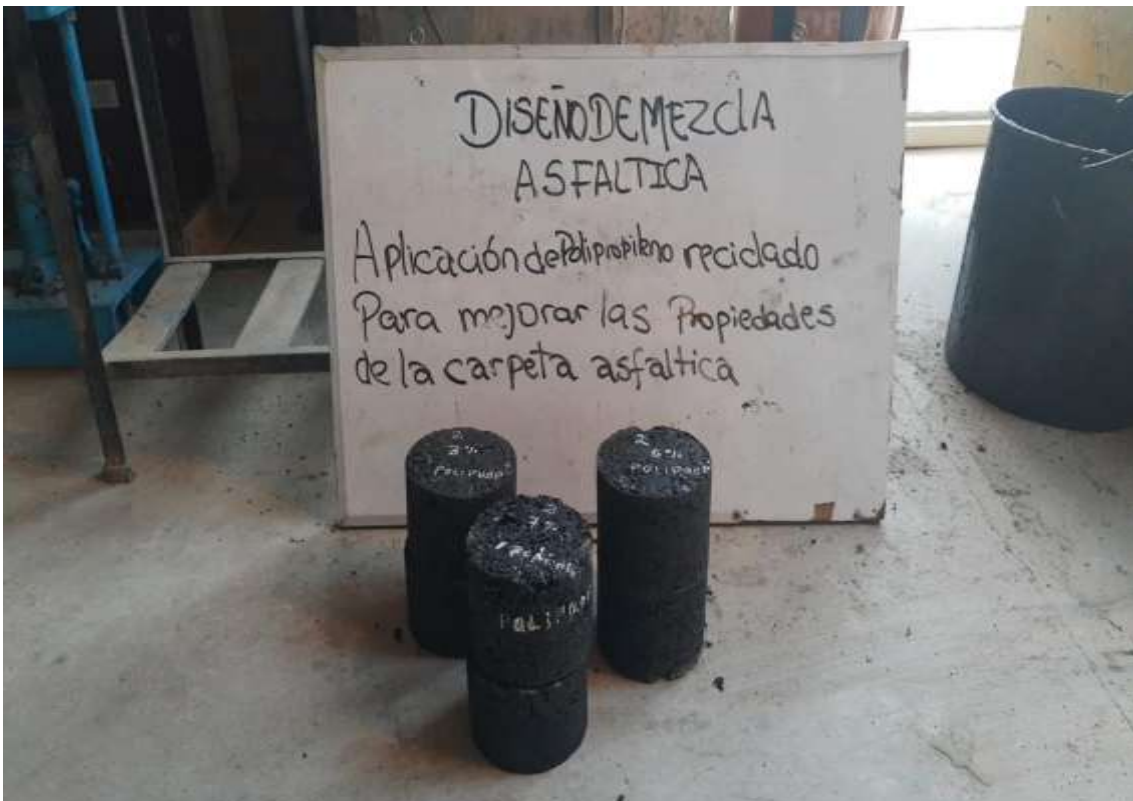 DISEÑO DE MEZCLA
ASFALTICA
Aplicación de Polipropileno reciclado
Para mejorar las Propiedades
de la carpeta asfaltica
2
3%
2
6%